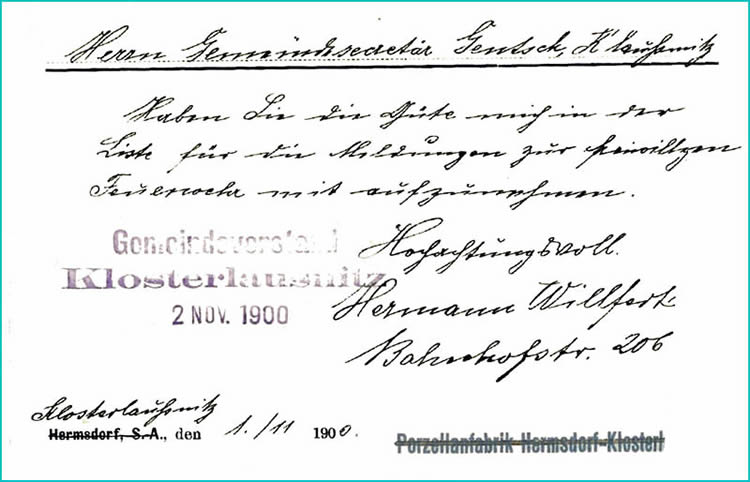 Herrn Gemeindesecretär Gentsch, K'laußnitz
Haben Sie die Güte mich in der
Liste für die Meldungen zur freiwilligen
Feuerwehr mit aufzunehmen.
Hochachtungsvoll.
Hermann Willfert
Bahnhofstr. 206
Gemeindevorstand
Klosterlausnitz
2 NOV. 1900
Klosterlaußnitz
Hermsdorf, S.-A., den 1./11 1900.
Porzellanfabrik Hermsdorf-Klosterl